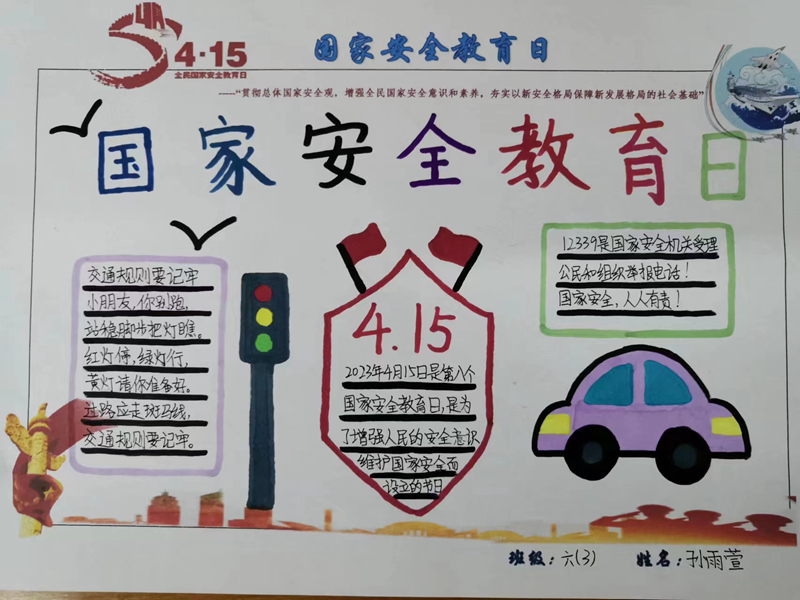 4·15
全民国家安全教育日
国家安全教育日
-----“贯彻总体国家安全观，增强全民国家安全意识和素养，夯实以新安全格局保障新发展格局的社会基础”
国家安全教育日
交通规则要记牢
小朋友，你别跑，
站稳脚步把灯瞧。
红灯停，绿灯行，
黄灯请你准备好。
过路应走斑马线，
交通规则要记牢。
4.15
2023年4月15日是第八个
国家安全教育日，是为
了增强人民的安全意识
维护国家安全而
设立的节日
12339是国家安全机关受理
公民和组织举报电话！
国家安全，人人有责！
班级：六(3)
姓名：孙雨萱